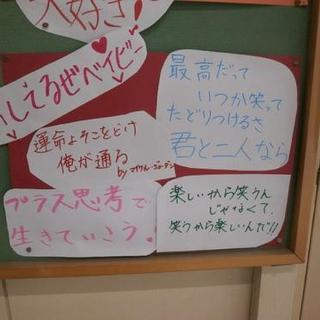 大好き!
いしてるぜベイビー
最高だって
いつか笑って
たどりつけるさ
君と二人なら
運命よそこをどけ
俺が通る
by マイケル・ジョーダン
プラス思考で
生きていこう!
楽しいから笑うん
じゃなくて、
笑うから楽しいんだ!!